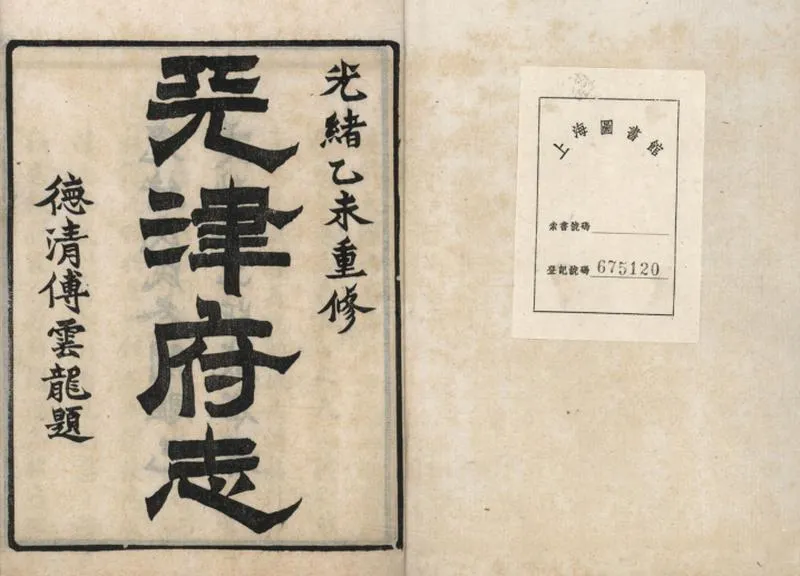 上海圖書館
索書號碼
登記號碼 675120
光緒乙未重修
天津府志
德清傅雲龍題